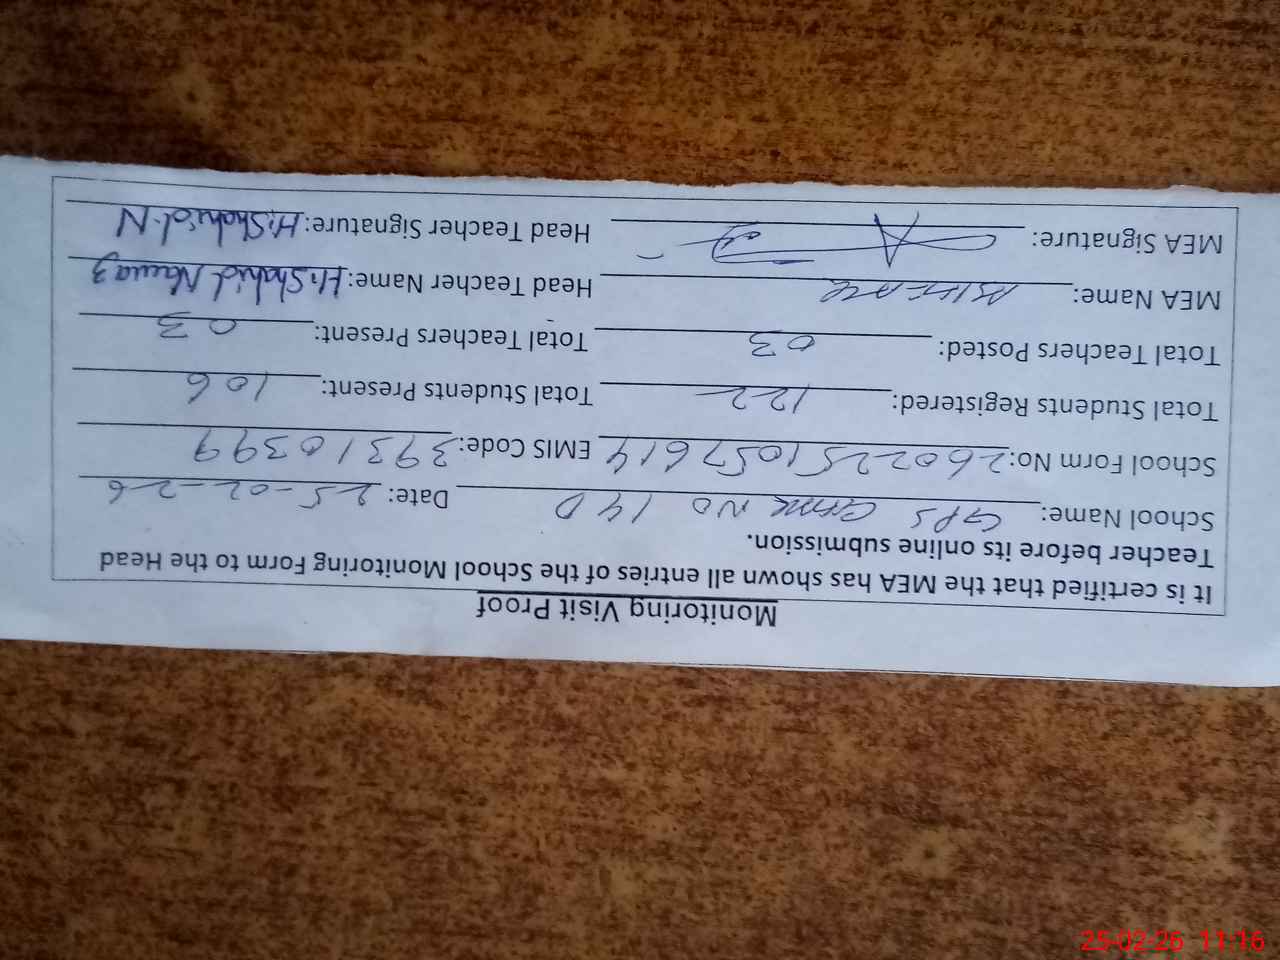 Monitoring Visit Proof
It is certified that the MEA has shown all entries of the School Monitoring Form to the Head
Teacher before its online submission.
School Name: GPS NO 14 D Date: 25-02-26
School Form No: 2602251057614 EMIS Code: 39310399
Total Students Registered: 122 Total Students Present: 106
Total Teachers Posted: 03 Total Teachers Present: 03
MEA Name: Head Teacher Name: H. Shahid Nawaz
MEA Signature: Head Teacher Signature: H. Shahid. N
25-02-26 11:16